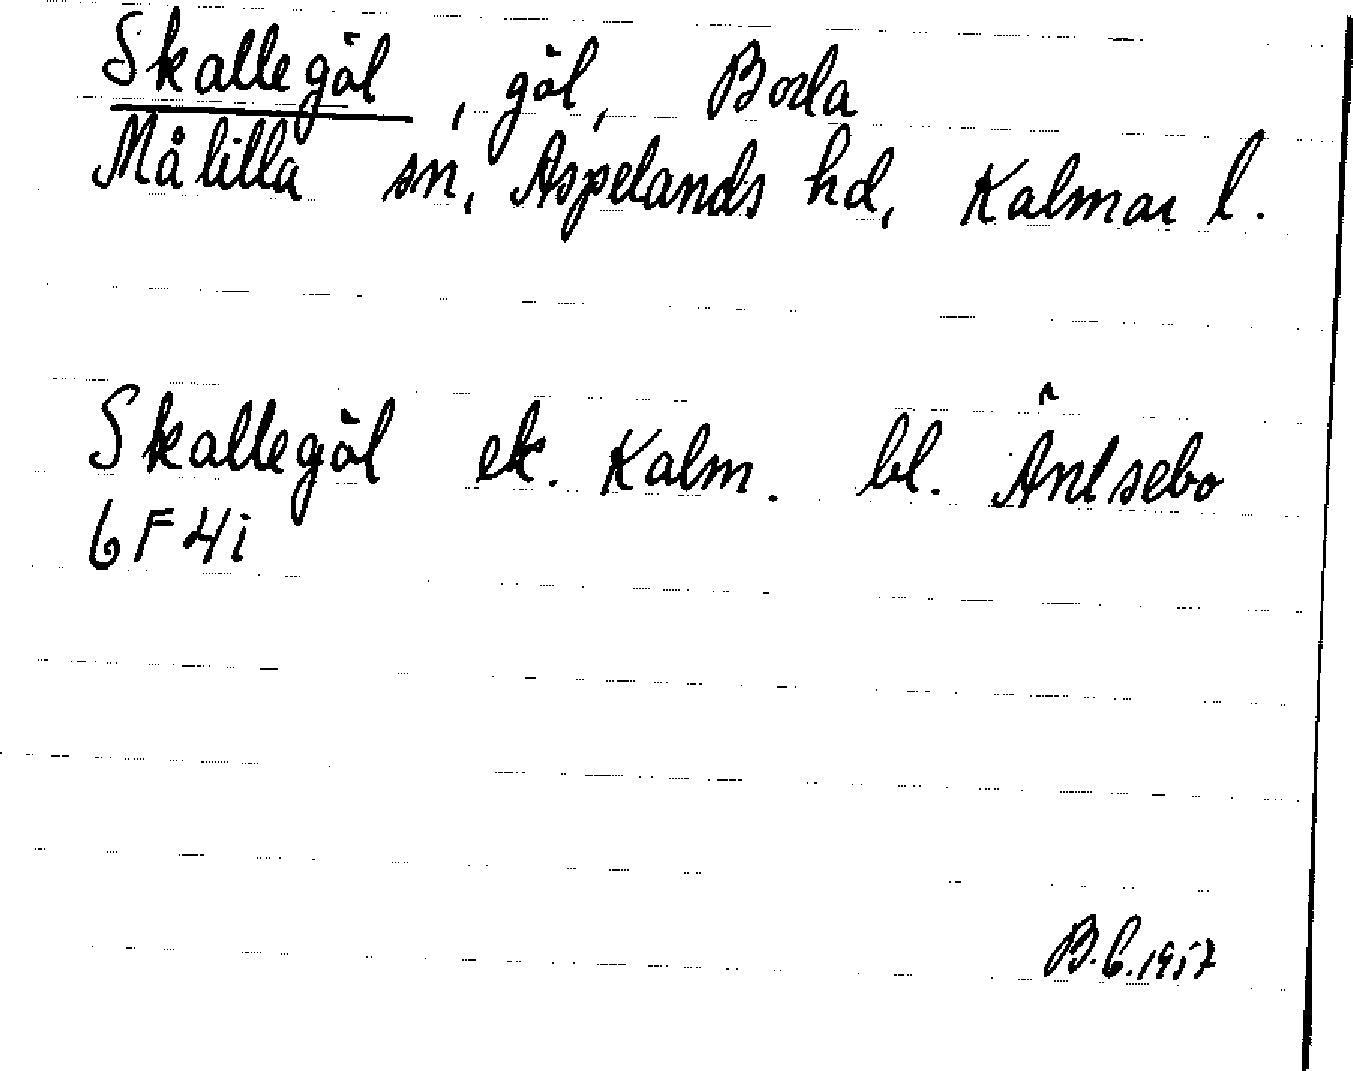 Skallegöl, göl, Borla
Målilla sn, Aspelands hd, Kalmar l.
Skallegöl ek. Kalm. bl. Äntsebo
6F4i
B.C.1957